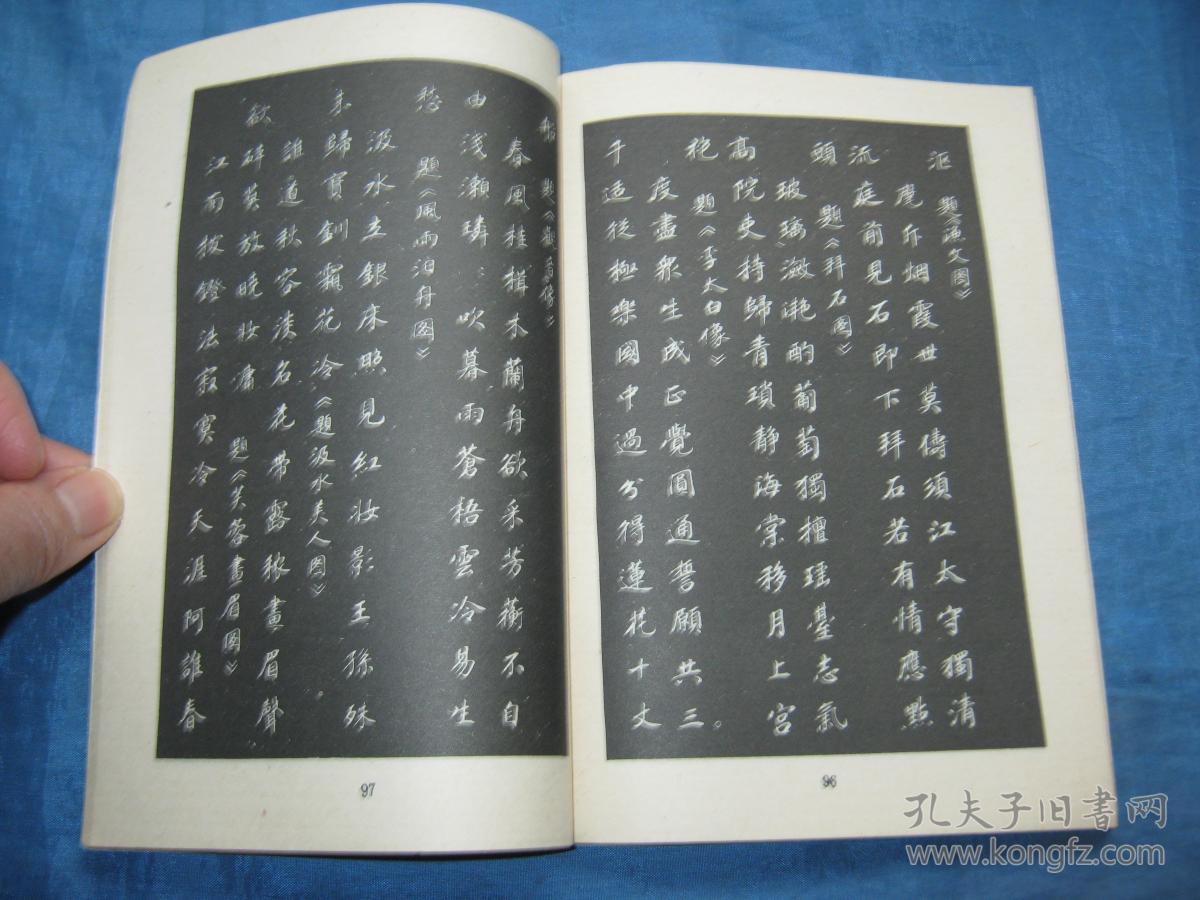 虎斤烟霞世莫俦須江太守獨清
流庭前見石即下拜石若有情應點
頭 題《拜石图》
玻璃激滟酌葡萄獨擅瑶臺志氣
高院吏持歸青瑣静海棠移月上宮
袍 題《李太白像》
度盡衆生成正覺圓通誓願共三。
千适從極樂國中過分得蓮花十丈
船 題《觀音像》
春風桂楫木蘭舟欲采芳蘅不自
由淺瀨璘:吹暮雨蒼梧雲冷易生
愁 題《風雨泊舟图》
汲水立銀床照見紅妝影王孫殊
未歸寶釧霜花冷《題汲水美人图》
誰道秋容淡名花帶露秾畫眉聲
欲碎莫放晚妝慵 題《芙蓉畫眉图》
江南披鐙法寂寞冷天涯阿誰春
97
96
孔夫子旧書网
www.kongfz.com